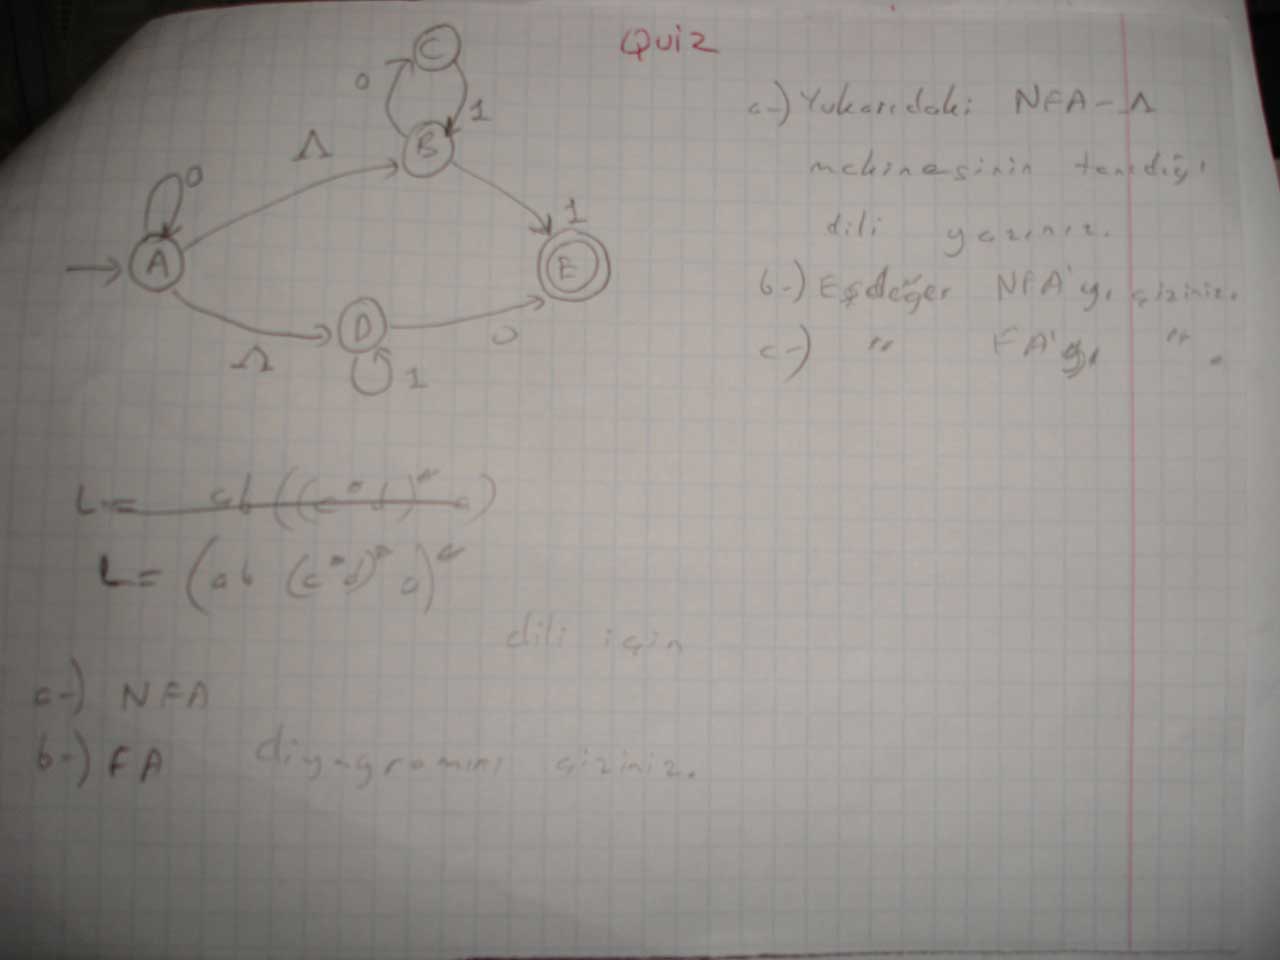 Quiz
C
0
1
Λ
B
0
1
A
E
D
0
Λ
1
a-) Yukarıdaki NFA-Λ
makinasının tanıdığı
dili yazınız.
b-) Eşdeğer NFA'yı çiziniz.
c-) " FA'yı " .
L= ab((c*d)* a)
L= (ab (c*d)* a)*
dili için
a-) NFA
b-) FA diyagramını çiziniz.